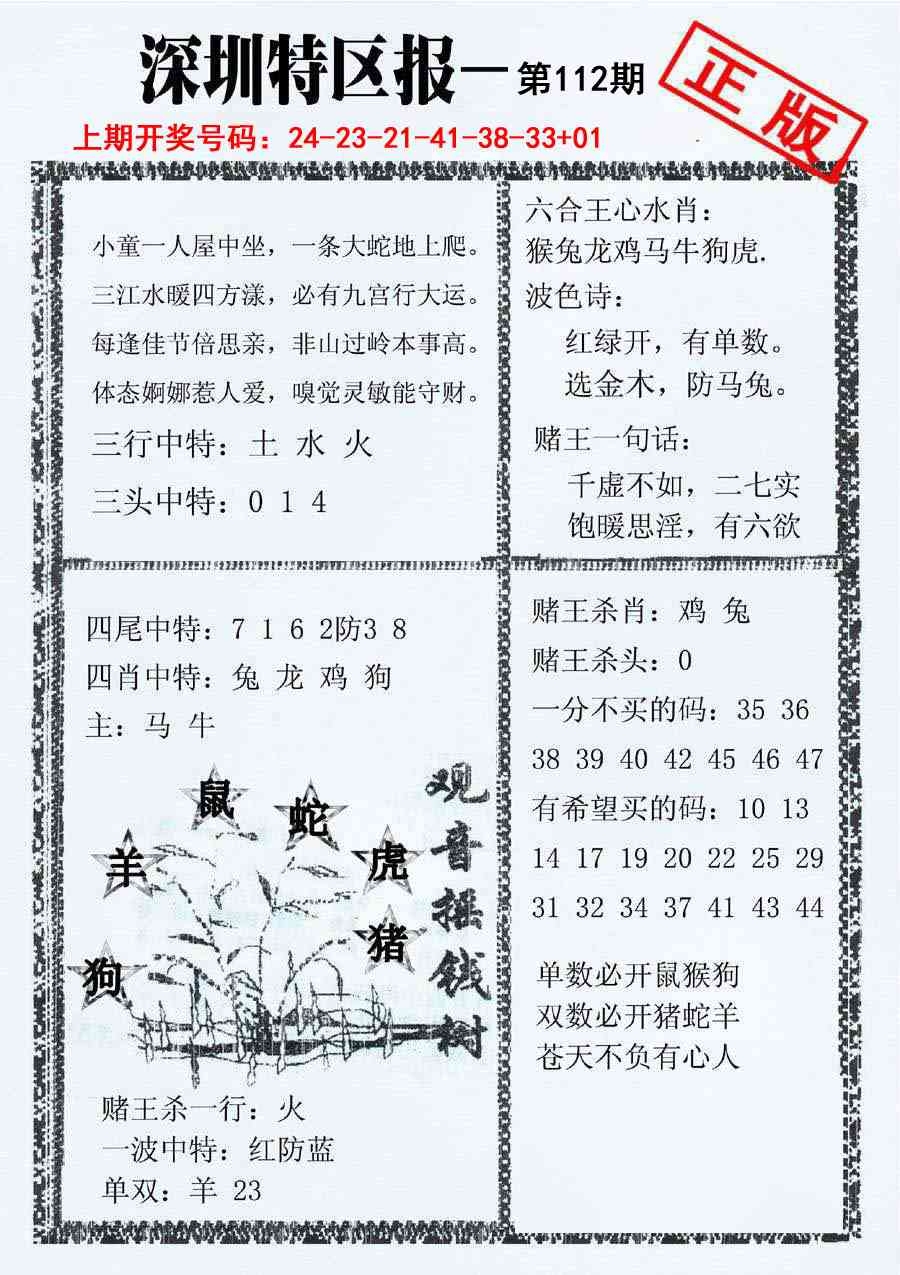 深圳特区报—第112期
正版
上期开奖号码：24-23-21-41-38-33+01
小童一人屋中坐，一条大蛇地上爬。
三江水暖四方漾，必有九宫行大运。
每逢佳节倍思亲，非山过岭本事高。
体态婀娜惹人爱，嗅觉灵敏能守财。
三行中特：土 水 火
三头中特：0 1 4
六合王心水肖：
猴兔龙鸡马牛狗虎.
波色诗：
红绿开，有单数。
选金木，防马兔。
赌王一句话：
千虚不如，二七实
饱暖思淫，有六欲
四尾中特：7 1 6 2防3 8
四肖中特：兔 龙 鸡 狗
主：马 牛
鼠
蛇
羊
虎
猪
狗
观音摇钱树
赌王杀一行：火
一波中特：红防蓝
单双：羊 23
赌王杀肖：鸡 兔
赌王杀头：0
一分不买的码：35 36
38 39 40 42 45 46 47
有希望买的码：10 13
14 17 19 20 22 25 29
31 32 34 37 41 43 44
单数必开鼠猴狗
双数必开猪蛇羊
苍天不负有心人